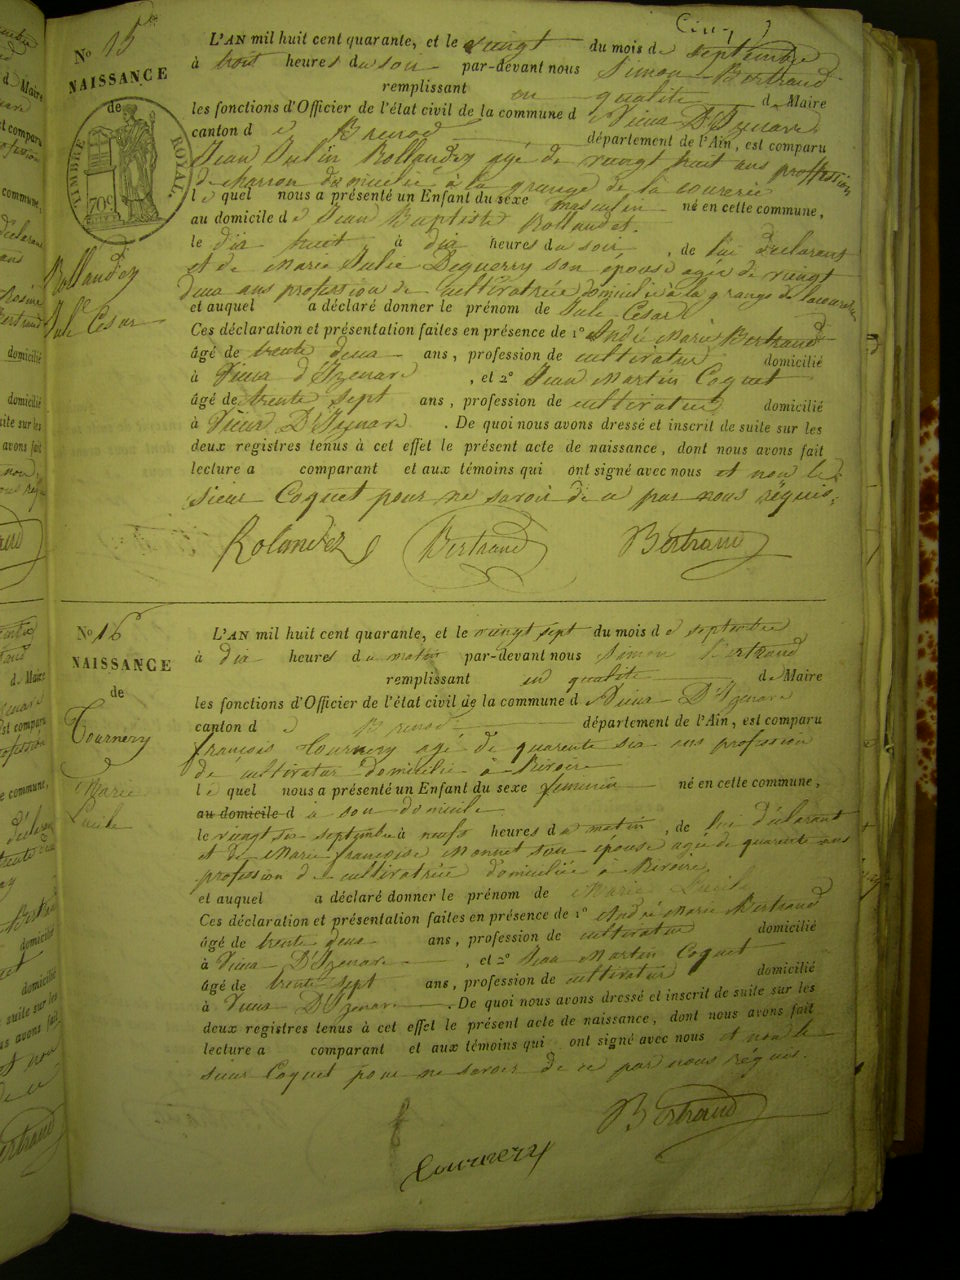 Cinq
No 15
NAISSANCE
de
TIMBRE ROYAL
70c
Rollandez
Jule Cesar
L'AN mil huit cent quarante, et le vingt du mois de septembre
à trois heures du soir par-devant nous Simon Bertrand
remplissant en qualité de Maire
les fonctions d'Officier de l'état civil de la commune de Vieux D'Izenave
canton de Brenod département de l'Ain, est comparu
Jean Julin Rollandez agé de vingt huit ans proffession
de charron domicilié à la grange de la
le quel nous a présenté un Enfant du sexe masculin né en cette commune,
au domicile de Jean Baptiste Rollandet.
le dix huit à dix heures du soir, de lui déclarant
et de Marie Julie Deguerry son épouse agée de vingt
deux ans profession de cultivatrice domiciliée à la grange de
et auquel a déclaré donner le prénom de Jule César
Ces déclaration et présentation faites en présence de 1o André Marie Bertrand
âgé de trente deux ans, profession de cultivateur domicilié
à Vieux d'Izenave, et 2o Jean Martin Coquet
âgé de trente sept ans, profession de cultivateur domicilié
à Vieux D'Izenave. De quoi nous avons dressé et inscrit de suite sur les
deux registres tenus à cet effet le présent acte de naissance, dont nous avons fait
lecture a comparant et aux témoins qui ont signé avec nous et non le
sieur Coquet pour ne savoir de ce par nous réquis.
Rolandez Bertrand Bertrand
No 16
NAISSANCE
de
Tournery
Marie
Lucile
L'AN mil huit cent quarante, et le vingt sept du mois de septembre
à dix heures du matin par-devant nous Simon Bertrand
remplissant en qualité de Maire
les fonctions d'Officier de l'état civil de la commune de Vieux D'Izenave
canton de Brenod département de l'Ain, est comparu
françois Tournery agé de quarente six ans profession
de cultivateur domicilié à
le quel nous a présenté un Enfant du sexe feminin né en cette commune,
au domicile d à son domicile
le vingt six septembre à neuf heures du matin, de lui déclarant
et de Marie françoise Monnet son épouse agée de quarente ans
profession de cultivatrice domiciliée à
et auquel a déclaré donner le prénom de Marie Lucile
Ces déclaration et présentation faites en présence de 1o André Marie Bertrand
âgé de trente deux ans, profession de cultivateur domicilié
à Vieux D'Izenave, et 2o Jean Martin Coquet
âgé de trente sept ans, profession de cultivateur domicilié
à Vieux D'Izenave. De quoi nous avons dressé et inscrit de suite sur les
deux registres tenus à cet effet le présent acte de naissance, dont nous avons fait
lecture a comparant et aux témoins qui ont signé avec nous et non le
sieur Coquet pour ne savoir de ce par nous réquis.
Bertrand
Tournery